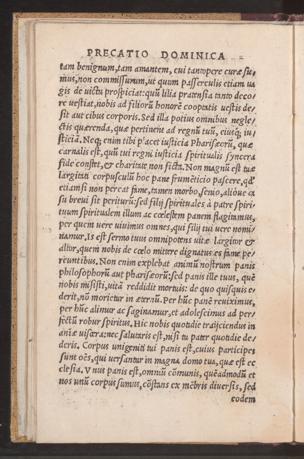 PRECATIO DOMINICA
tam benignum, tam amantem, cui tantopere curæ su
mus, non commissurum, ut quum passerculis etiam ua
gis de uictu prospiciat: quũ lilia pratensia tanto deco
re uestiat, nobis ad filiorũ honorẽ cooptatis uestis de
sit aut cibus corporis. Sed illa potius omnibus negle
ctis quærenda, quæ pertinent ad regnũ tuũ, eiusq; iu
sticiã. Neq; enim tibi placet iusticia Pharisæorũ, quæ
carnalis est, quũ tui regni iusticia spiritualis syncera
fide constet, & charitate non ficta. Non magnũ est tuæ
largitati corpusculũ hoc pane frumẽticio pascere, qđ
etiamsi non pereat fame, tamen morbo, senio, alióue ex
su breui sit periturũ: sed filij spirituales à patre spiri=
tuum spiritualem illum ac cœlestem panem flagitamus,
per quem uere uiuimus omnes, qui filij tui uere nomi/
namur. Is est sermo tuus omnipotens uitæ largitor &
altor, quem nobis de cœlo mittere dignatus es fame pe/
reuntibus. Non enim explebat animũ nostrum panis
philosophorũ aut pharisæorũ: sed panis ille tuus, quẽ
nobis misisti, uitã reddidit mortuis: de quo quisquis e
derit, nõ morietur in æternũ. Per hũc panẽ reuiximus,
per hũc alimur ac saginamur, et adolescimus ad per/
fectũ robur spiritus. Hic nobis quotidie traijciendus in
animæ uiscera: nec salutaris est, nisi tu pater quotidie de-
deris. Corpus unigeniti tui panis est, cuius participes
sunt oẽs, qui uersantur in magna domo tua, quæ est ec
clesia. Vnus panis est, omniũ cõmunis, quẽadmodũ et
nos unũ corpus sumus, cõstans ex mẽbris diuersis, sed
eodem